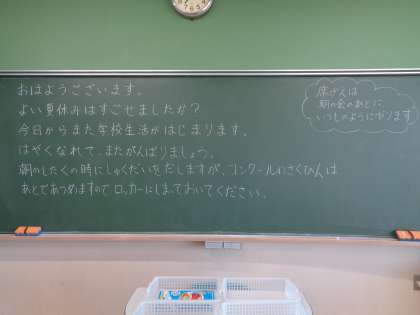 おはようございます。
よい夏休みはすごせましたか?
今日からまた学校生活がはじまります。
はやくなれて、またがんばりましょう。
朝のしたくの時にしゅくだいをだしますが、コンクールのさくひんは
あとであつめますので ロッカーにしまっておいてください。
席がえは
朝の会のあとに
いつものようにやります